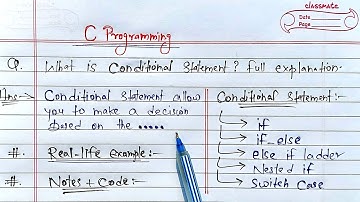 classmate
Date
Page
C Programming
Q. What is Conditional Statement? full explanation.
Ans:- Conditional Statement allow
you to make a decision
based on the .....
#. Real-life Example:-
#. Notes + Code:-
Conditional Statement:-
if
if_else
else if ladder
Nested if
Switch Case